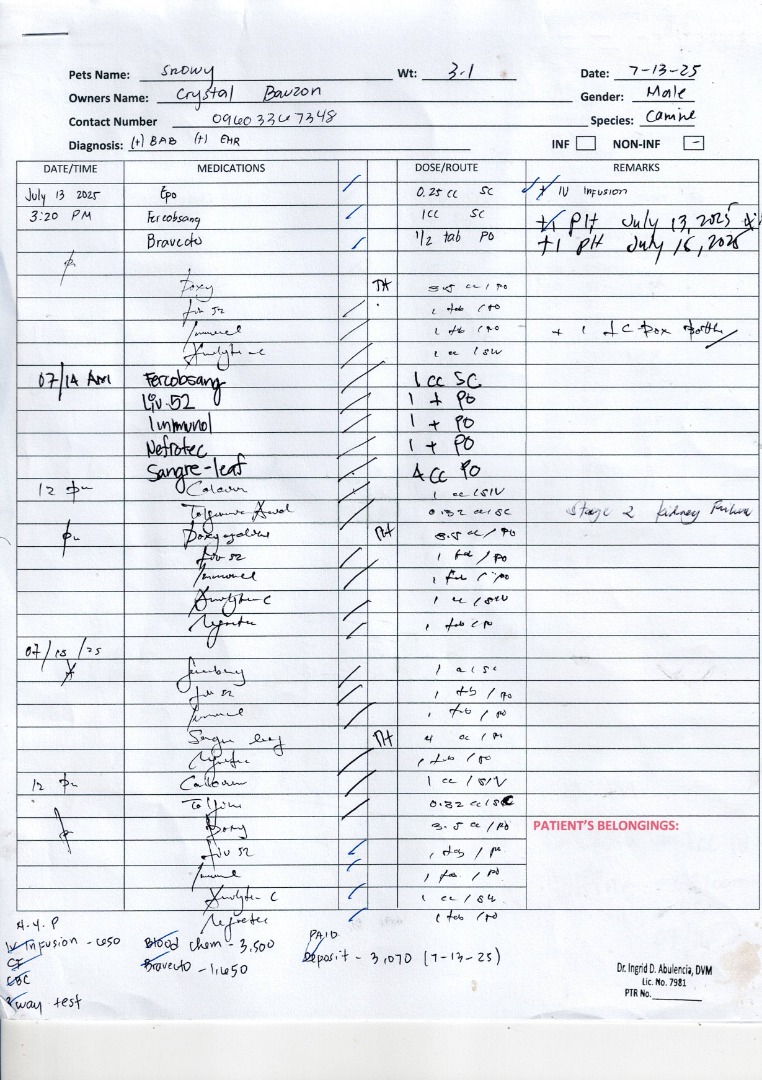 Pets Name: Snowy Wt: 3.1 Date: 7-13-25
Owners Name: Crystal Bauzon Gender: Male
Contact Number 09603367348 Species: Canine
Diagnosis: (+) BAB (+) EHR INF NON-INF -
DATE/TIME MEDICATIONS DOSE/ROUTE REMARKS
July 13 2025 Epo 0.25 cc SC + IV Infusion
3:20 PM Fercobsang 1cc SC +1 PH July 13, 2025
Bravecto 1/2 tab PO +1 PH July 15, 2025
Doxy TH 3.5 cc / PO
Liv 52 1 tab / PO
Immunol 1 tab / PO
Analytic-C 1 cc / SIV
07/14 AM Fercobsang 1 cc SC
Liv.52 1 + PO
Immunol 1 + PO
Nefrotec 1 + PO
Sangre-leaf 4 cc PO
12 pm 1 cc / SIV
0.32 cc / SC Stage 2 kidney Failure
pm 3.5 cc / PO
Liv 52 1 tab / PO
Immunol 1 tab / PO
Analytic C 1 cc / SIV
Nefrotec 1 tab / PO
07/15/25
1 cc / SC
Liv 52 1 tab / PO
Immunol 1 tab / PO
Sangre leaf 4 cc / PO
Nefrotec 1 tab / PO
12 pm 1 cc / SIV
0.32 cc / SC
Doxy 3.5 cc / PO PATIENT'S BELONGINGS:
Liv 52 1 tab / PO
Immunol 1 tab / PO
Analytic C 1 cc / SIV
Nefrotec 1 tab / PO
IV Infusion - 650 Blood chem - 3,500 PAID
CF Bravecto - 1,650 Deposit - 3,070 (7-13-25)
CBC
way test
Dr. Ingrid D. Abulencia, DVM
Lic. No. 7981
PTR No.